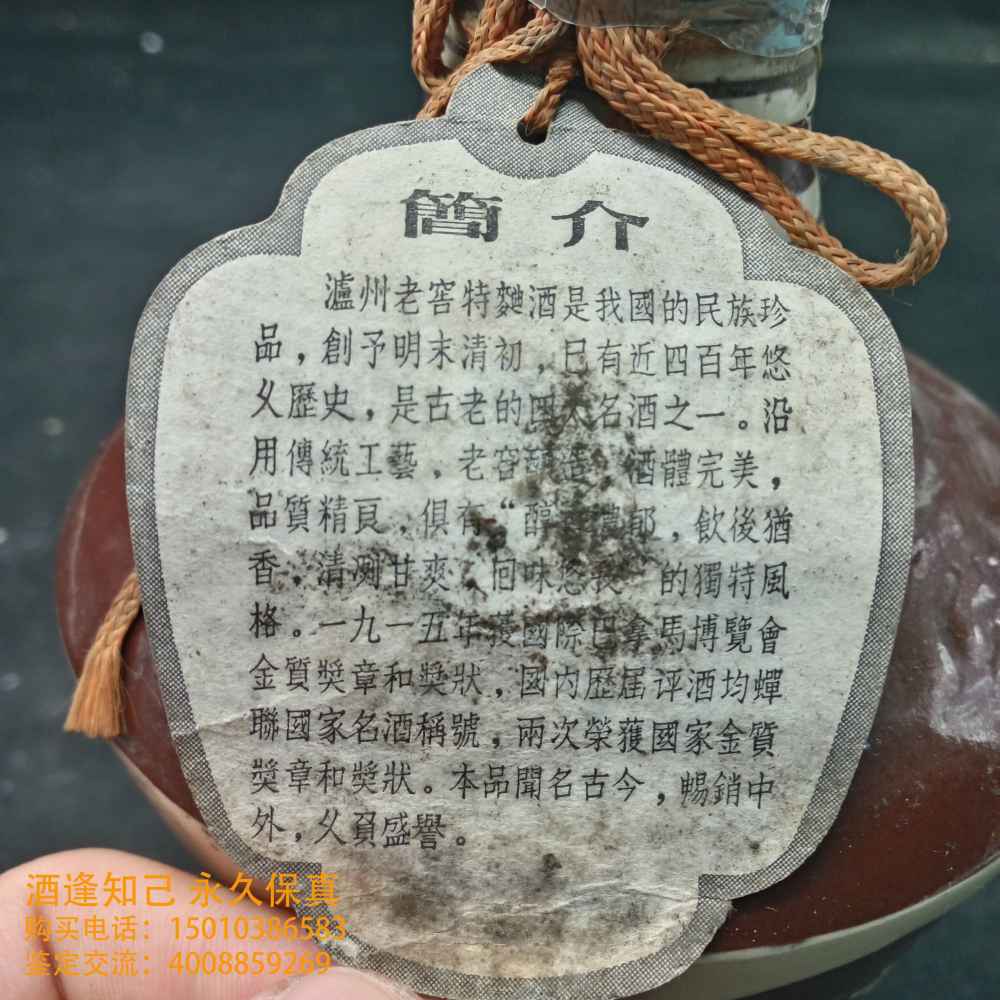 簡介
瀘州老窖特麯酒是我國的民族珍
品，創予明末清初，已有近四百年悠
乆歷史，是古老的四大名酒之一。沿
用傳統工藝，老窖釀造，酒體完美，
品質精良，俱有“醇香濃郁，飲後猶
香，清洌甘爽，回味悠長”的獨特風
格。一九一五年獲國際巴拿馬博覽會
金質獎章和獎狀，国内歷届评酒均蟬
聯國家名酒稱號，兩次榮獲國家金質
獎章和獎狀。本品聞名古今，暢銷中
外，乆負盛譽。
酒逢知己 永久保真
购买电话：15010386583
鉴定交流：4008859269